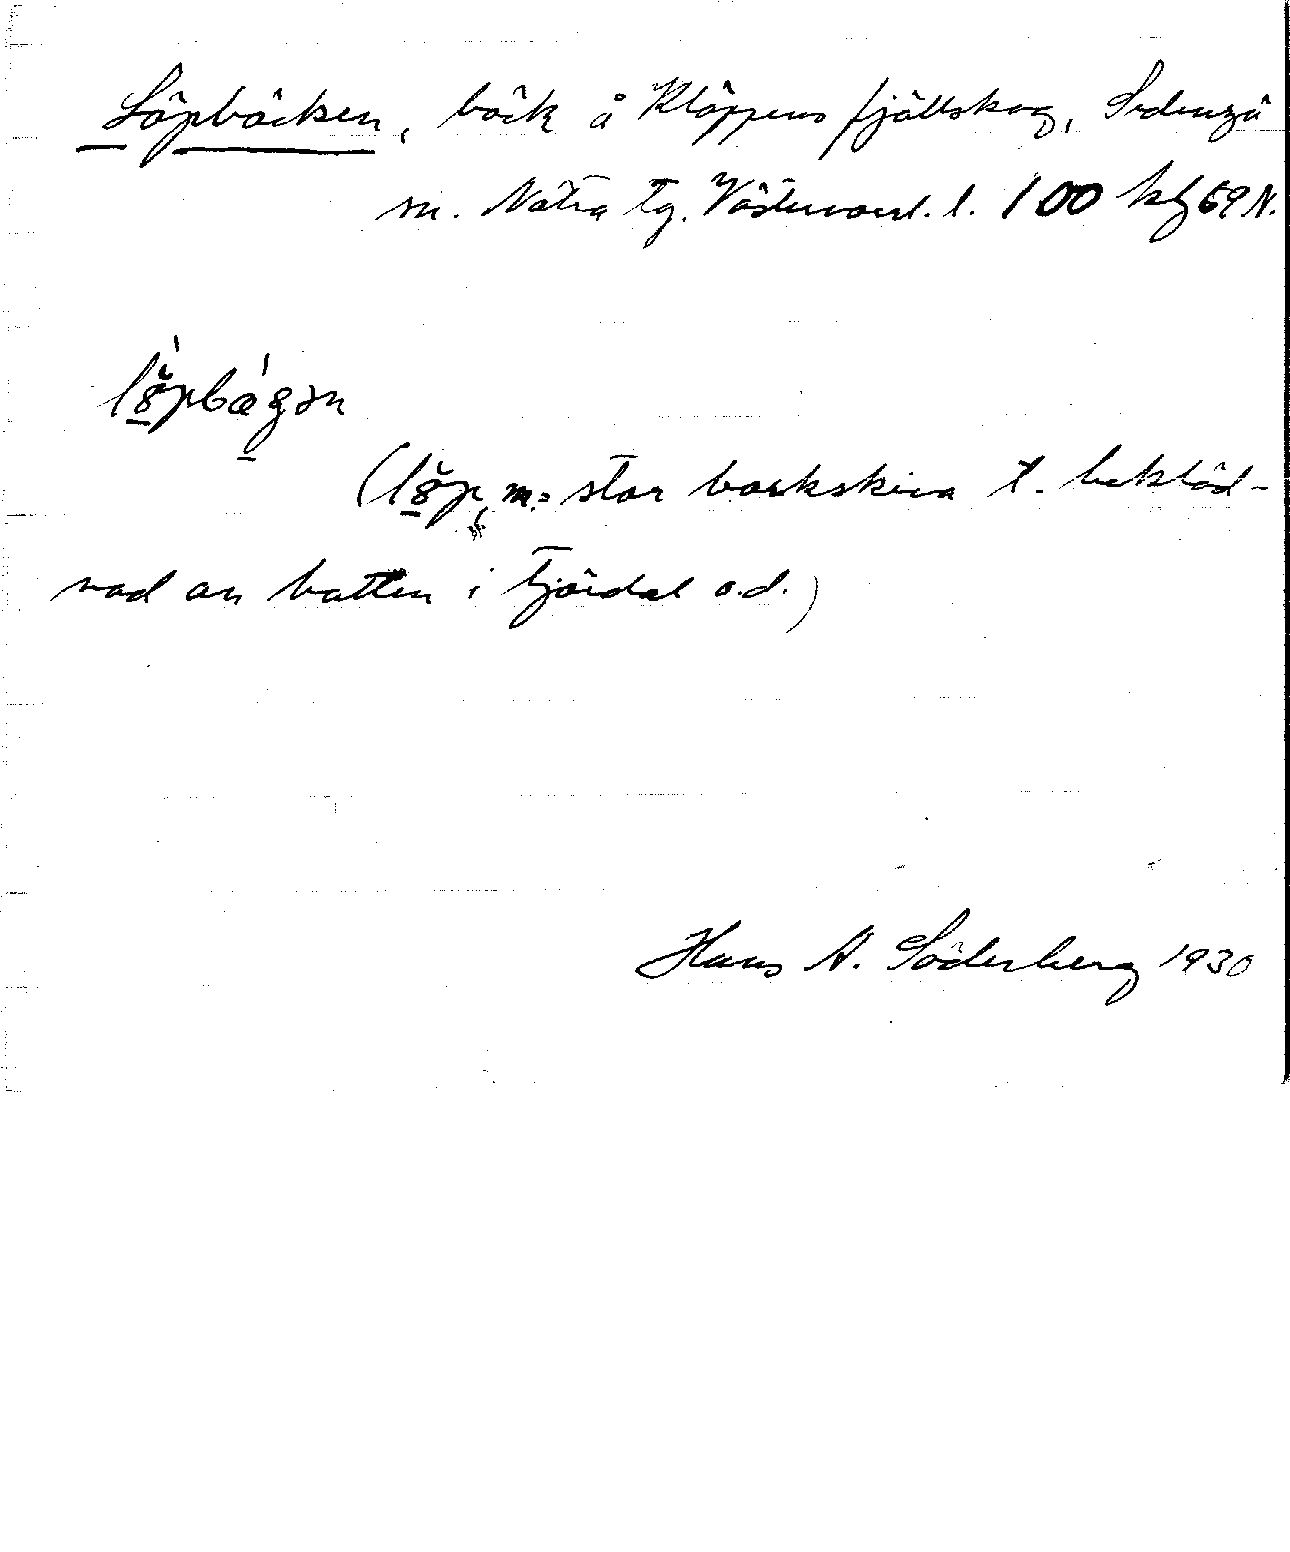 Löpbäcken, bäck å Kläppens fjällskog, Sidensjö
sn. Nätra tg. Västernorrl. l. 100 kbl 69 N.
löpbägən
(löp, m. = stor barkskiva t. bekläd-
nad av botten i tjärdal o.d.)
Hans A. Söderberg 1930